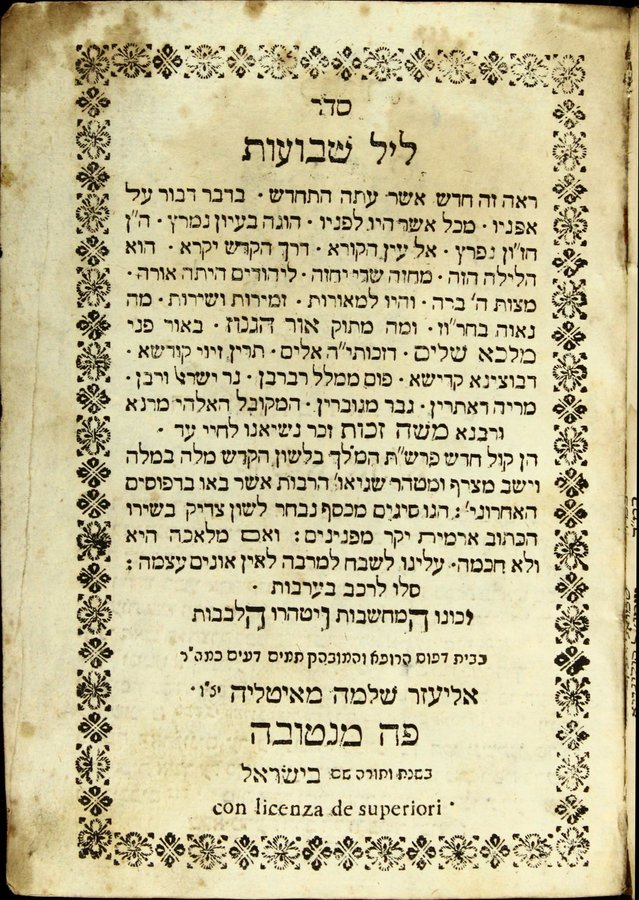 סדר
ליל שבועות
ראה זה חדש אשר עתה התחדש · בדבר דבור על
אפניו · מכל אשר היו לפניו · הוגה בעיון נמרץ · ה"ן
הו"ון נפרץ · אל עין הקורא · דרך הקדש יקרא · הוא
הלילה הזה · מחזה שדי יחזה · ליהודים היתה אורה ·
מצות ה' ברה · והיו למאורות · זמירות ושירות · מה
נאוה בחר"וז · ומה מתוק אור הגנוז · באור פני
מלכא שלים · דזכותי"ה אלים · תרין זיוי קודשא ·
דבוצינא קדישא · פום ממלל רברבן · נר ישראל ורבן ·
מריה דאתרין · גבר מגוברין · המקובל האלהי מרנא
ורבנא משה זכות זכר נשיאנו לחיי עד ·
הן קול חדש פרש"ת המלך בלשון הקדש מלה במלה
וישב מצרף ומטהר שגיאו' הרבות אשר באו בדפוסים
האחרוני' : הנו סיגים מכסף נבחר לשון צדיק בשירו
הכתוב ארמית יקר מפנינים : ואם מלאכה היא
ולא חכמה · עלינו לשבח למרבה לאין אונים עצמה :
סלו לרכב בערבות ·
יכונו המחשבות ויטהרו הלבבות
בבית דפוס הרופא והמובהק תמים דעים כמה"ר
אליעזר שלמה מאיטליה יצ"ו ·
פה מנטובה
בשנת ותורה שם בישראל
con licenza de superiori ·